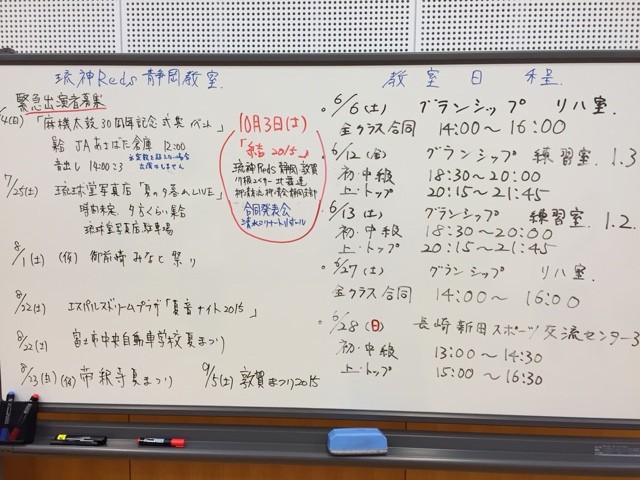 琉神Reds 静岡教室
緊急出演者募集
/4(日)「麻機太鼓30周年記念式典イベント」
JAあさばた倉庫 12:00
音出し 14:00
7/25(土) 琉球堂写真店「夏の夕暮れLIVE」
時間未定 夕方くらい集合
琉球堂写真店駐車場
8/1(土) (仮) 御前崎みなと祭り
8/22(土) エスパルスドリームプラザ「夏音ナイト2015」
8/22(土) 富士市中央自動車学校夏まつり
8/23(日)(仮) 帝釈寺夏まつり
9/5(土) 敦賀まつり2015
10月3日(土)
「結 2015」
琉神Reds 静岡 敦賀
合同発表会
教室日程
6/6(土) グランシップ リハ室
全クラス合同 14:00〜16:00
6/12(金) グランシップ 練習室 1.3
初・中級 18:30〜20:00
上・トップ 20:15〜21:45
6/13(土) グランシップ 練習室 1.2.
初・中級 18:30〜20:00
上・トップ 20:15〜21:45
6/27(土) グランシップ リハ室
全クラス合同 14:00〜16:00
6/28(日) 長崎新田スポーツ交流センター3
初・中級 13:00〜14:30
上・トップ 15:00〜16:30